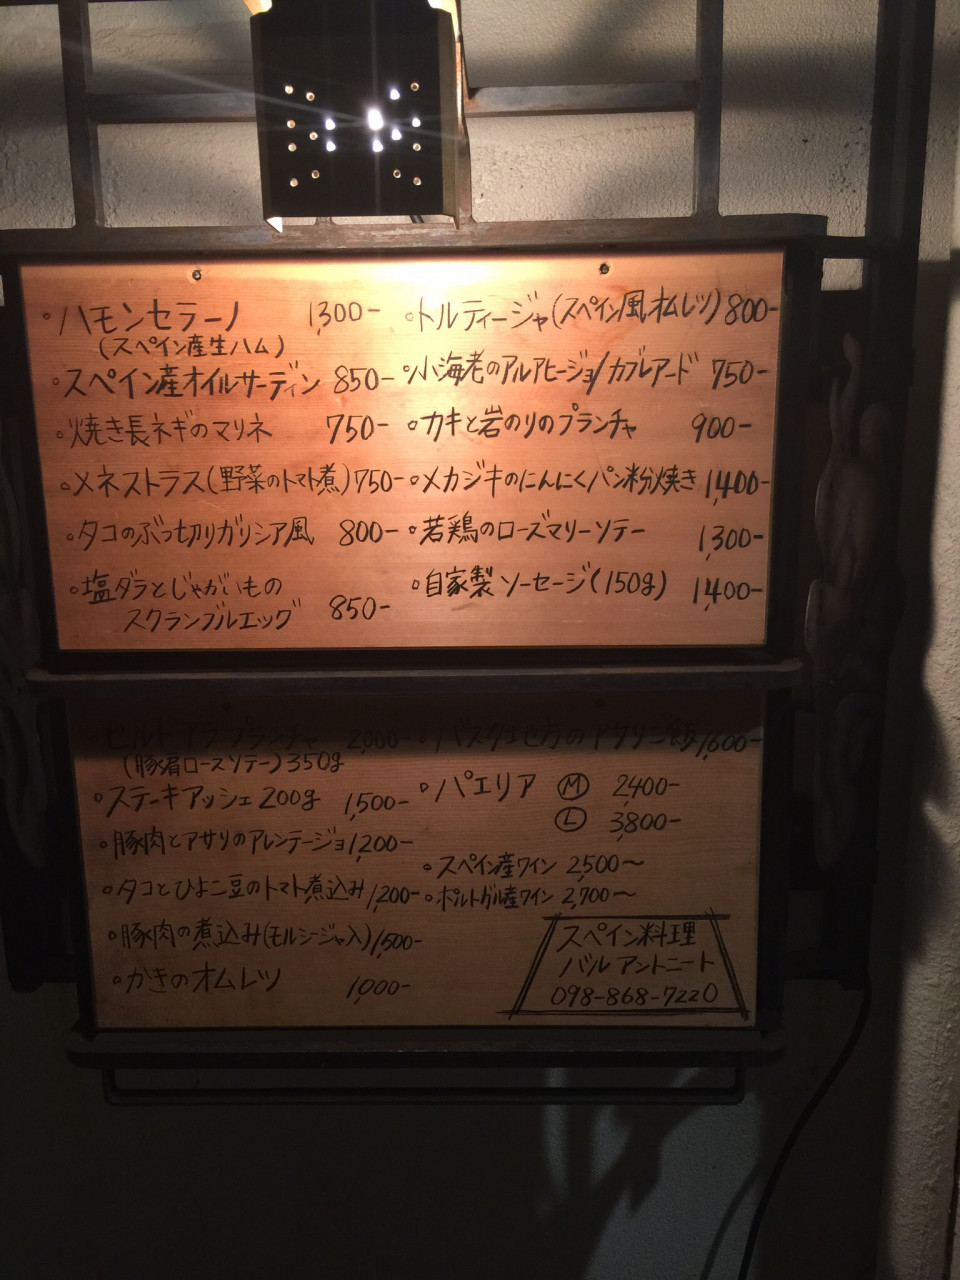 ◦ハモンセラーノ 1,300-
(スペイン産生ハム)
◦スペイン産オイルサーディン 850-
◦焼き長ネギのマリネ 750-
◦メネストラス(野菜のトマト煮) 750-
◦タコのぶっ切りガリシア風 800-
◦塩ダラとじゃがいもの
スクランブルエッグ 850-
◦トルティージャ(スペイン風オムレツ) 800-
◦小海老のアルアヒージョ/カブレアード 750-
◦カキと岩のりのプランチャ 900-
◦メカジキのにんにくパン粉焼き 1,400-
◦若鶏のローズマリーソテー 1,300-
◦自家製ソーセージ(150g) 1,400-
プランチャ 2,000-
(豚肩ロースソテー)350g
◦ステーキアッシェ200g 1,500-
◦豚肉とアサリのアレンテージョ 1,200-
◦タコとひよこ豆のトマト煮込み 1,200-
◦豚肉の煮込み(モルシージャ入) 1,500-
◦かきのオムレツ 1,000-
◦バスク地方のアサリご飯 1,600-
◦パエリア Ⓜ 2,400-
Ⓛ 3,800-
◦スペイン産ワイン 2,500〜
◦ポルトガル産ワイン 2,700〜
スペイン料理
バル アントニート
098-868-7220